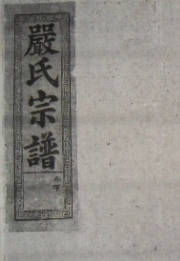 嚴氏宗譜